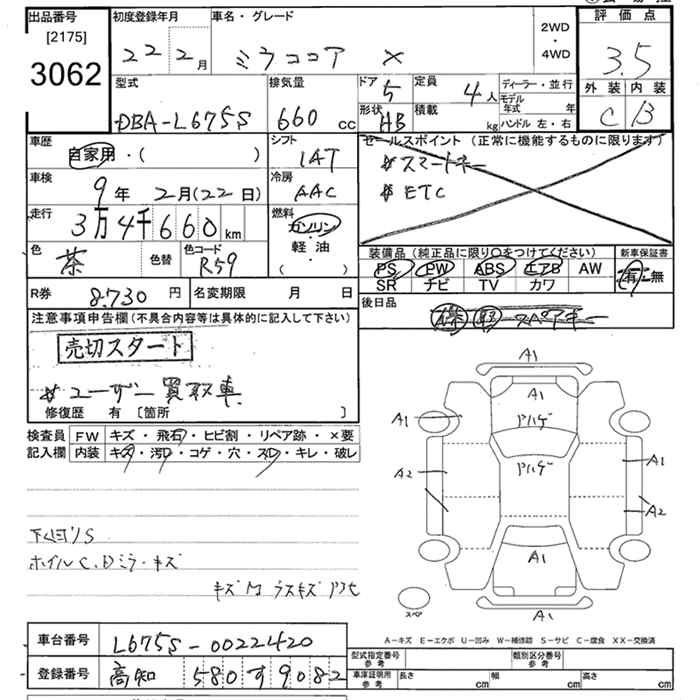 出品番号 初度登録年月 車名・グレード 2WD・4WD 評価点
[2175]
3062
22 2月 ミラココア X 3.5
型式 排気量 ドア 5 定員 4人 ディーラー・並行 外装 内装
DBA-L675S 660 cc 形状 HB 積載 kg モデル年式 年 C B
ハンドル 左・右
車歴 シフト セールスポイント (正常に機能するものに限ります)
自家用・( ) IAT #スマートキー
車検 冷房 #ETC
9年 2月(22日) AAC
走行 3万4千660km 燃料 ガソリン
軽・油
( )
色 茶 色替 色コード R59
装備品 (純正品に限り○をつけてください) 新車保証書
PS PW ABS エアB AW 有・無
SR ナビ TV カワ
R券 8.730円 名変期限 月 日 後日品
注意事項申告欄 (不具合内容等は具体的に記入して下さい)
売切スタート
#ユーザー買取車
修復歴 有 [箇所 ]
検査員 FW キズ・飛石・ヒビ割・リペア跡・×要
記入欄 内装 キズ・汚れ・コゲ・穴・スレ・キレ・破レ
A1
A1
A1 ハゲ
A1
A2 ハゲ
A2
A1
A1
スペア
下回りS
ホイルC、Dミラーキズ
A-キズ E-エクボ U-凹み W-補修跡 S-サビ C-腐食 XX-交換済
車台番号 L675S-0022420
登録番号 高知 580 す 9082
型式指定番号 参考 類別区分番号 参考
車庫証明用 参考 長さ cm 幅 cm 高さ cm